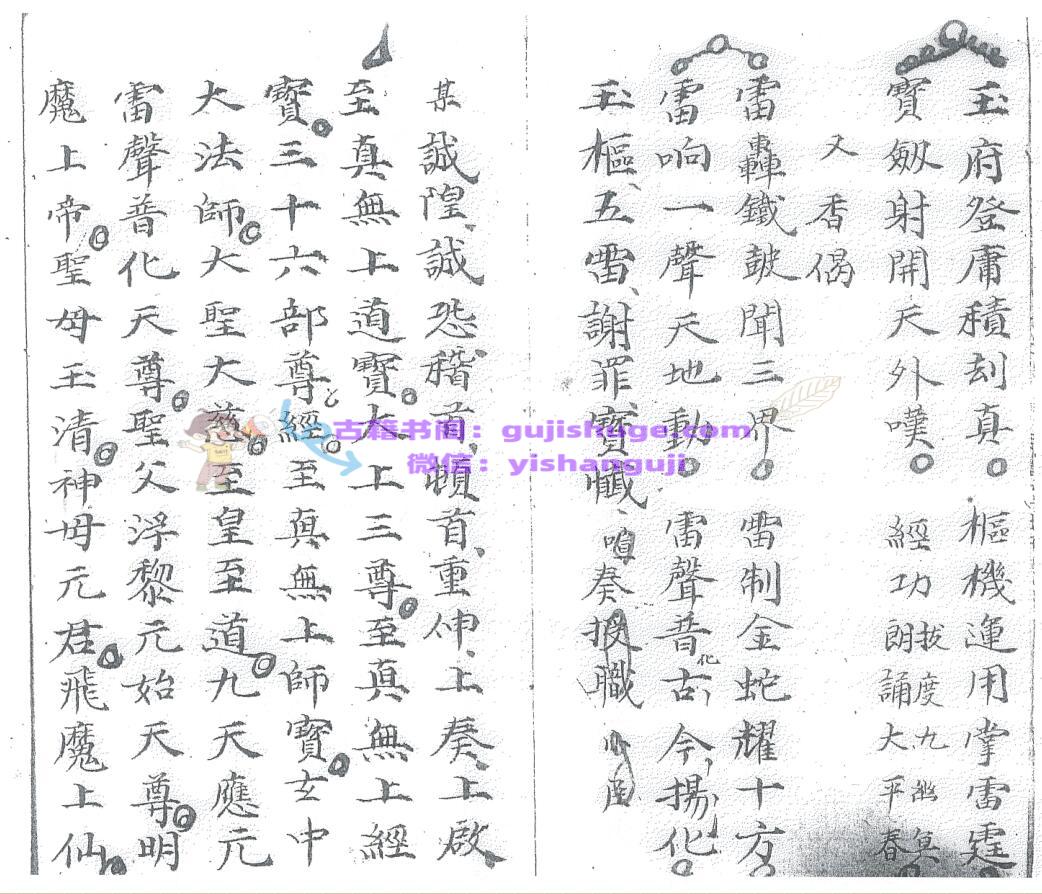 玉府登庸積刦真 樞機運用掌雷霆
寶劔射開天外嘆 經功朗誦大平春
拔度九幽
又香偈
雷轟鐵皷聞三界 雷制金蛇耀十方
雷响一聲天地動 雷聲普化古今揚化
玉樞五雷謝罪寶懺 奏授職
臣
某誠隍誠恐稽首頓首重伸上奏上啟
至真無上道寶大上三尊至真無上經
寶三十六部尊經至真無上師寶玄中
大法師大聖大慈至皇至道九天應元
雷聲普化天尊聖父浮黎元始天尊明
魔上帝聖母玉清神母元君飛魔上仙
古籍书阁：gujishuge.com
微信：yishanguji